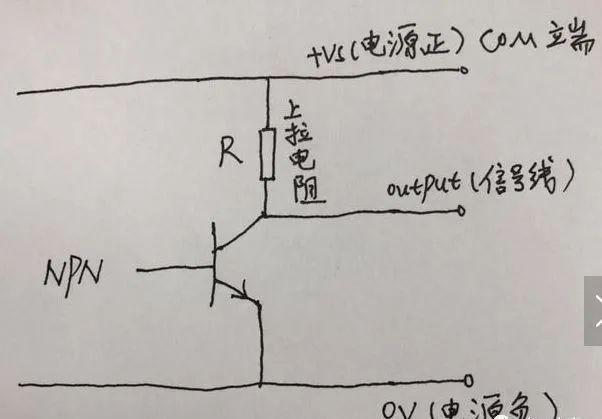 +Vs(电源正) COM 端
R
上拉电阻
output(信号线)
NPN
0V(电源负)